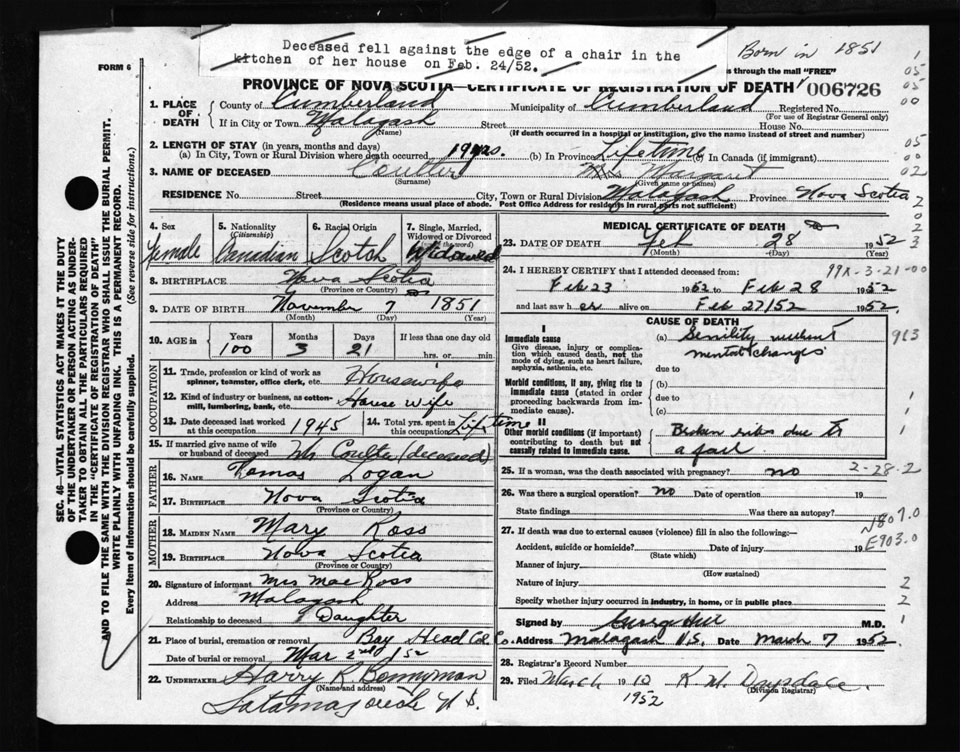 Deceased fell against the edge of a chair in the
kitchen of her house on Feb. 24/52.
Born in 1851
FORM 6
s through the mail "FREE"
PROVINCE OF NOVA SCOTIA—CERTIFICATE OF REGISTRATION OF DEATH 006726
1. PLACE OF DEATH County of Cumberland Municipality of Cumberland Registered No.
(For use of Registrar General only)
If in City or Town Malagash Street House No.
(Name) (If death occurred in a hospital or institution, give the name instead of street and number)
2. LENGTH OF STAY (in years, months and days)
(a) In City, Town or Rural Division where death occurred 19 yrs. (b) In Province Lifetime (c) In Canada (if immigrant)
3. NAME OF DECEASED Coulter Mrs Margaret
(Surname) (Given name or names)
RESIDENCE No. Street City, Town or Rural Division Malagash Province Nova Scotia
(Residence means usual place of abode. Post Office Address for residents in rural parts not sufficient)
4. Sex Female
5. Nationality (Citizenship) Canadian
6. Racial Origin Scotch
7. Single, Married, Widowed or Divorced Widowed
8. BIRTHPLACE Nova Scotia
(Province or Country)
9. DATE OF BIRTH November 7 1851
(Month) (Day) (Year)
10. AGE in Years Months Days If less than one day old
100 3 21 hrs. or min.
OCCUPATION
11. Trade, profession or kind of work as spinner, teamster, office clerk, etc. Housewife
12. Kind of industry or business, as cotton-mill, lumbering, bank, etc. House wife
13. Date deceased last worked at this occupation 1945 14. Total yrs. spent in this occupation Lifetime
15. If married give name of wife or husband of deceased Mr Coulter (deceased)
FATHER
16. NAME Logan
17. BIRTHPLACE Nova Scotia
(Province or Country)
MOTHER
18. MAIDEN NAME Mary Ross
19. BIRTHPLACE Nova Scotia
(Province or Country)
20. Signature of informant Mrs Mae Ross
Address Malagash
Relationship to deceased Daughter
21. Place of burial, cremation or removal Bay Head Col. Co.
Date of burial or removal Mar 2nd 52
22. UNDERTAKER Harry R. Bonnyman
(Name and address)
Tatamagouche N S.
MEDICAL CERTIFICATE OF DEATH
23. DATE OF DEATH Feb 28 1952
(Month) (Day)
24. I HEREBY CERTIFY that I attended deceased from:
Feb 23 1952 to Feb 28 1952
and last saw her alive on Feb 27/52 1952.
CAUSE OF DEATH
I
Immediate cause
Give disease, injury or complication which caused death, not the mode of dying, such as heart failure, asphyxia, asthenia, etc.
(a) Senility without mental changes
due to
Morbid conditions, if any, giving rise to immediate cause (stated in order proceeding backwards from immediate cause).
(b)
due to
(c)
II
Other morbid conditions (if important) contributing to death but not causally related to immediate cause.
Broken ribs due to a fall
25. If a woman, was the death associated with pregnancy? no
26. Was there a surgical operation? no Date of operation
State findings Was there an autopsy?
27. If death was due to external causes (violence) fill in also the following:—
Accident, suicide or homicide? Date of injury 19
(State which)
Manner of injury
(How sustained)
Nature of injury
Specify whether injury occurred in industry, in home, or in public place
Signed by M.D.
Address Malagash N.S. Date March 7 1952
28. Registrar's Record Number
29. Filed March 10 1952 K. M. Drysdale
(Division Registrar)
2-28-2
N807.0
E903.0
SEC. 46—VITAL STATISTICS ACT MAKES IT THE DUTY
OF THE UNDERTAKER OR PERSON ACTING AS UNDER-
TAKER TO OBTAIN ALL THE PARTICULARS REQUIRED
IN THE "CERTIFICATE OF REGISTRATION OF DEATH"
AND TO FILE THE SAME WITH THE DIVISION REGISTRAR WHO SHALL ISSUE THE BURIAL PERMIT.
WRITE PLAINLY WITH UNFADING INK. THIS IS A PERMANENT RECORD.
Every item of information should be carefully supplied. (See reverse side for instructions.)